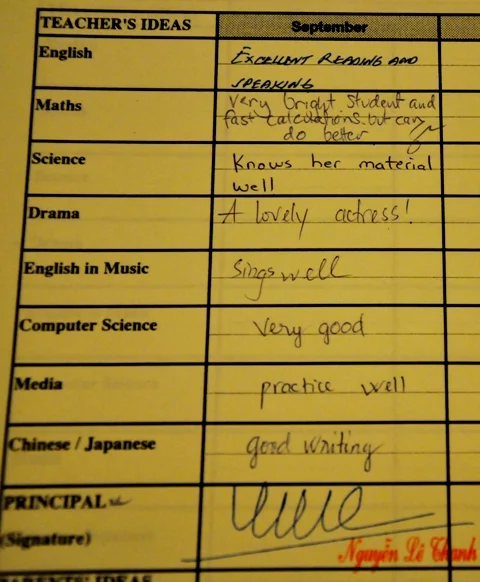 TEACHER'S IDEAS September
English EXCELLENT READING AND
SPEAKING
Maths very bright student and
fast calculations but can
do better
Science Knows her material
well
Drama A lovely actress!
English in Music Sings well
Computer Science Very good
Media practice well
Chinese / Japanese good writing
PRINCIPAL
(Signature)
Nguyễn Lê Thanh
PARENTS' IDEAS